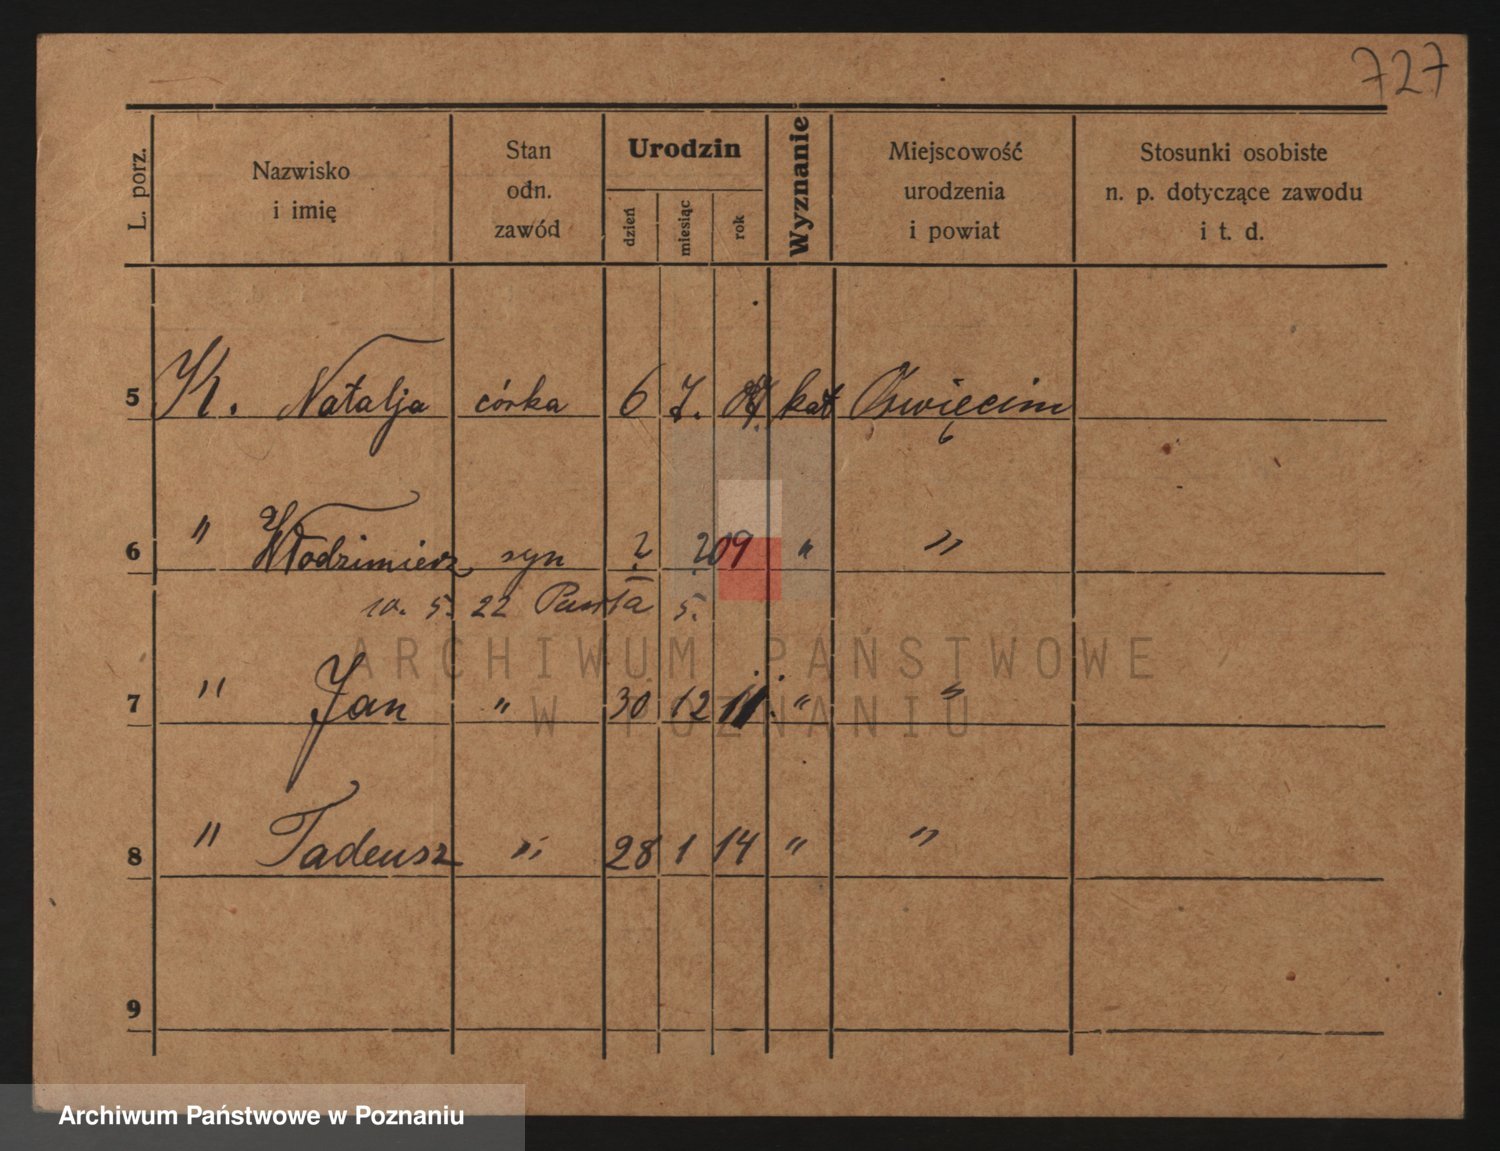 727
L. porz.
Nazwisko
i imię
Stan
odn.
zawód
Urodzin
dzień
miesiąc
rok
Wyznanie
Miejscowość
urodzenia
i powiat
Stosunki osobiste
n. p. dotyczące zawodu
i t. d.
5 K. Natalja córka 6 7. kat Oświęcim
6 " Włodzimierz syn 2 2 09 " "
10. 5. 22 5.
7 " Jan " 30 12 11. " "
8 " Tadeusz " 28 1 14 " "
9
ARCHIWUM PAŃSTWOWE
W POZNANIU
Archiwum Państwowe w Poznaniu